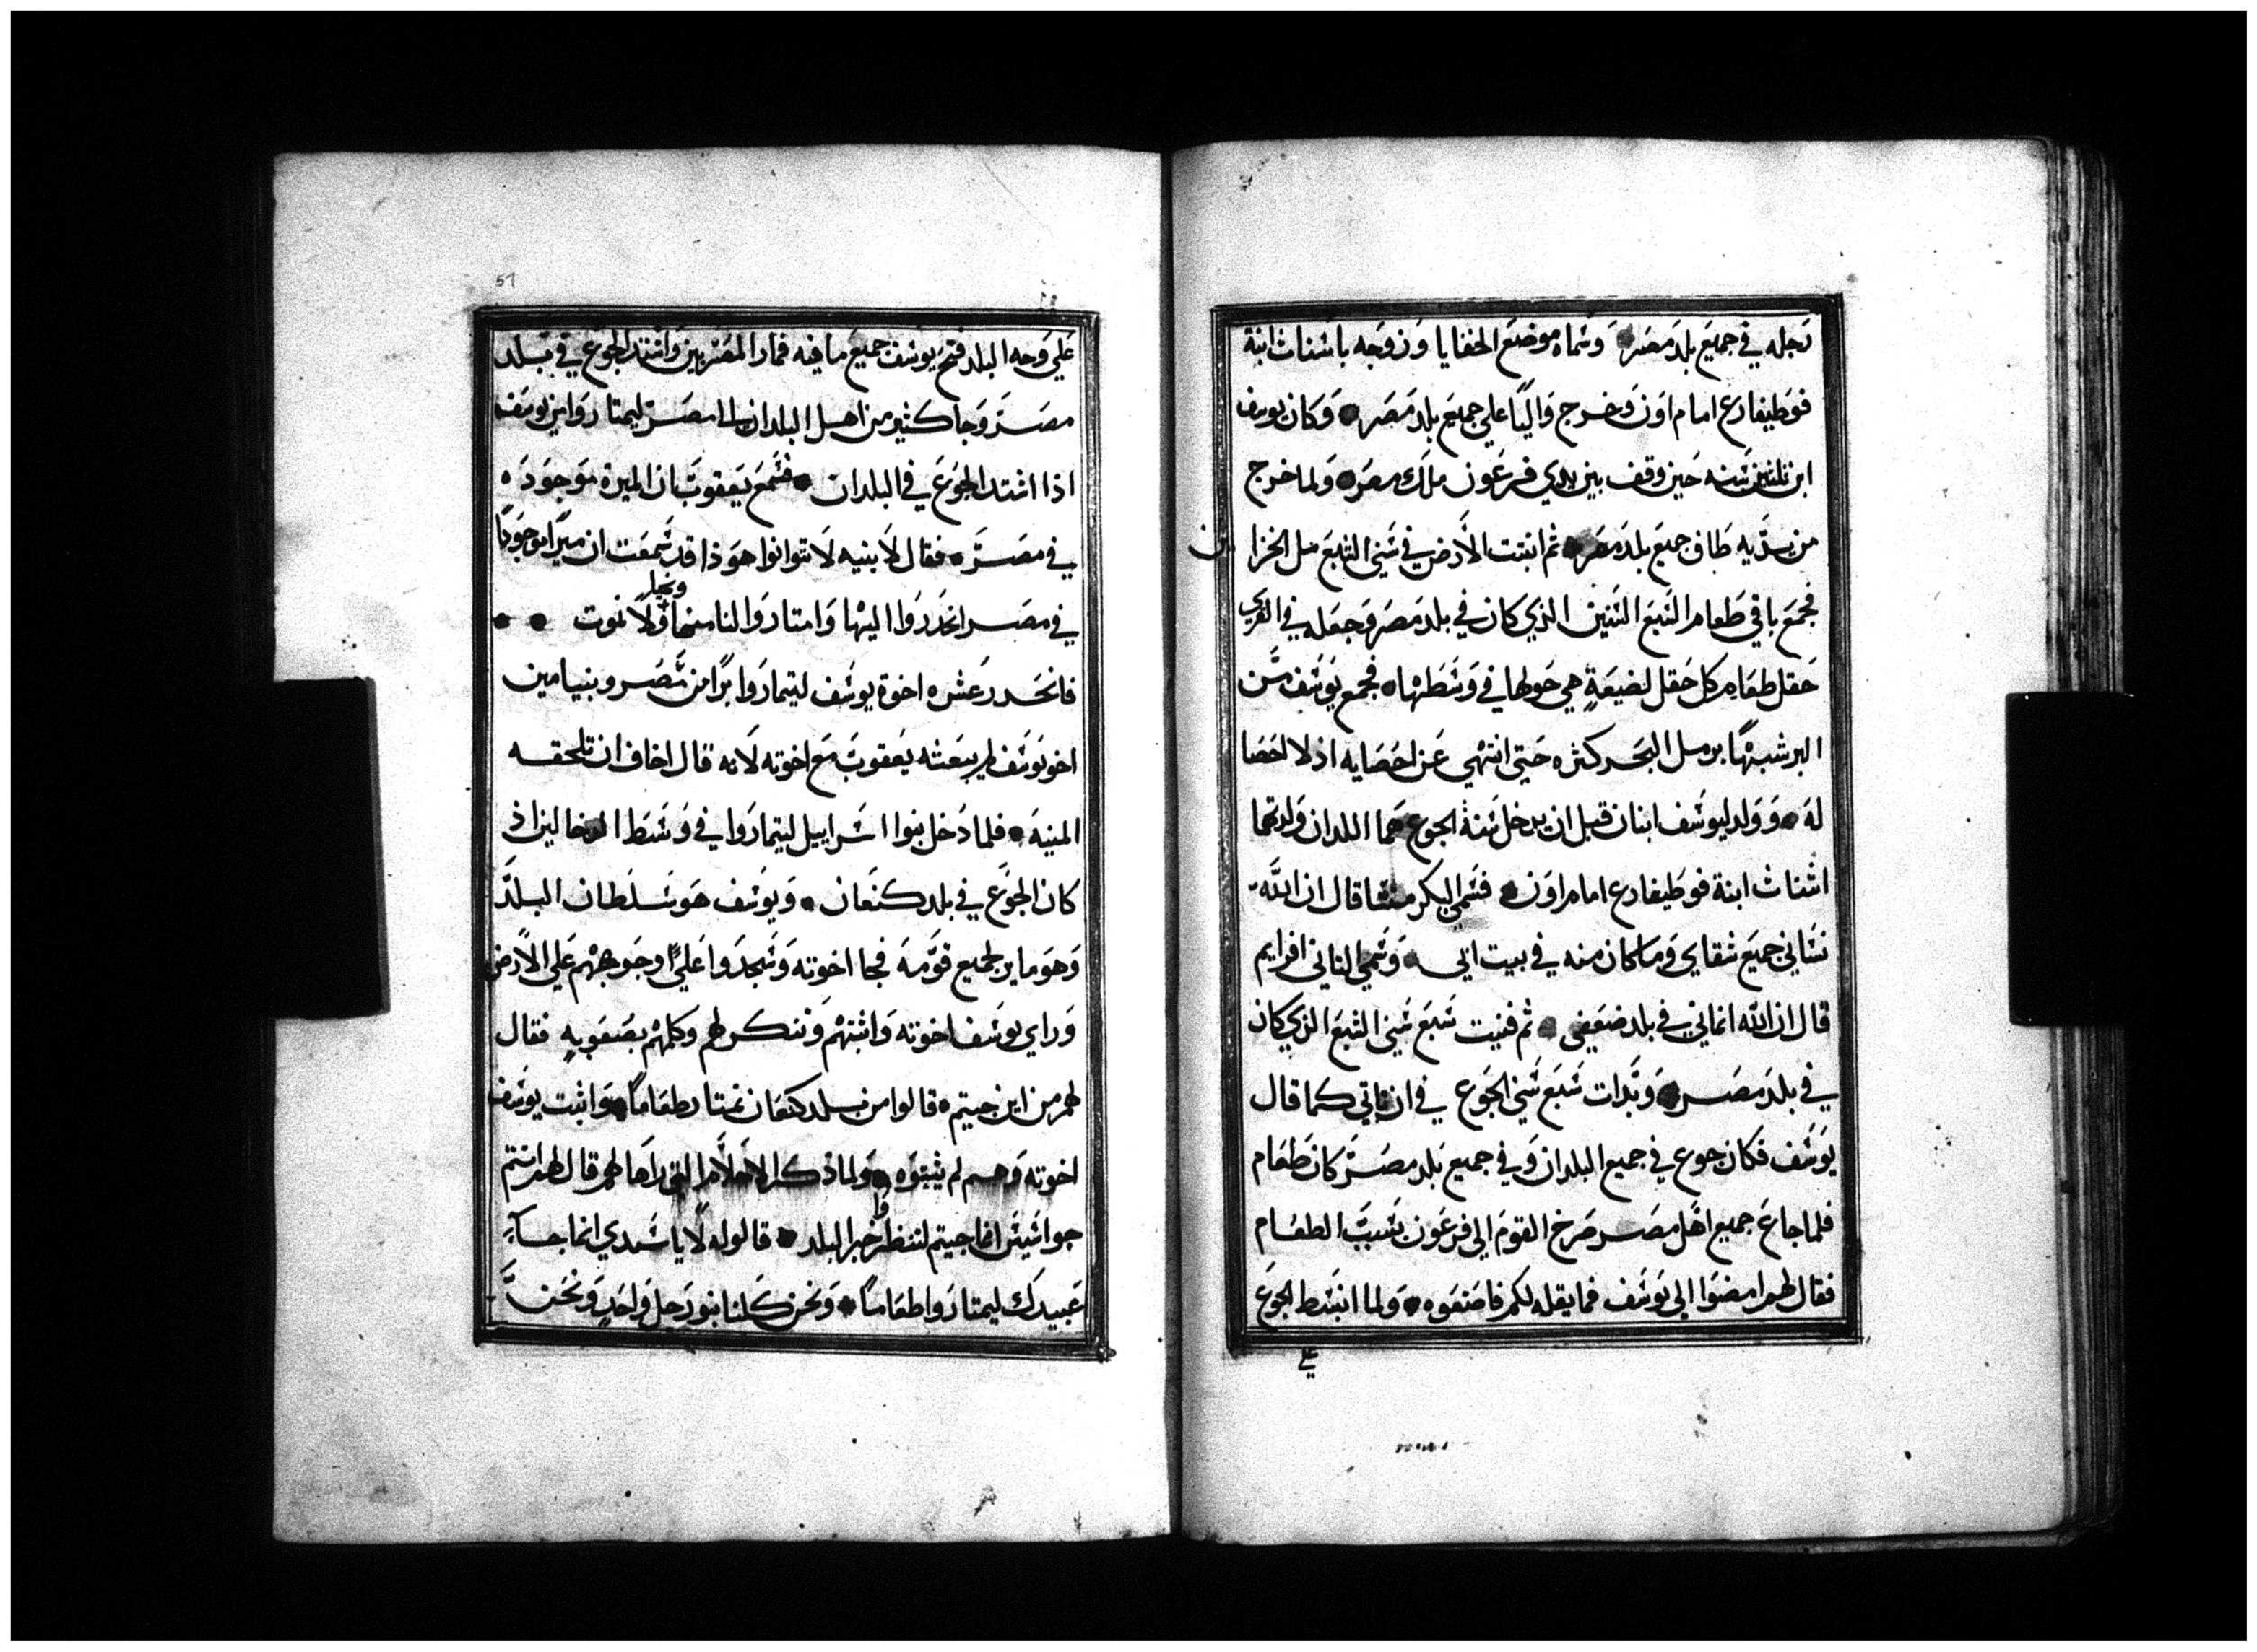 رجله في جميع بلد مصر وسماه موضع الخفايا وزوجه باسنات ابنة
فوطيفارع امام اون وخرج واليًا علي جميع بلد مصر وكان يوسف
ابن تلتين سنه حين وقف بين يدي فرعون ملك مصر ولما خرج
من يديه طاف جميع بلد مصر ثم انبتت الارض في سني الشبع مل الخزا
ين
فجمع باقي طعام السبع السنين الذي كان في بلد مصر وجعله في القري
حقل طعام كل حقل لضيعة هي حولها في وسطها فجمع يوسف من
البر شبهًا برمل البحر كثره حتي انتهي عن احصايه اذ لا احصا
له وولد ليوسف ابنان قبل ان يدخل سنة الجوع هما اللدان ولدتهما
اسنات ابنة فوطيفارع امام اون فسمي البكر منشا قال ان الله
نساني جميع شقاي وما كان منه في بيت ابي وسمي الثاني افرايم
قال ان الله انماني في بلد ضعفي ثم فنيت سبع سني الشبع الذي كان
في بلد مصر وبدات سبع سني الجوع في ان تاتي كما قال
يوسف فكان جوع في جميع البلدان وفي جميع بلد مصر كان طعام
فلما جاع جميع اهل مصر صرخ القوم الي فرعون بسبب الطعام
فقال لهم امضوا الي يوسف فما يقله لكم فاصنعوه ولما انبسط الجوع
علي
51
علي وجه البلد فتح يوسف جميع ما فيه فمار المصريين واشتد الجوع في بلد
مصر وجا كثير من اهل البلدان الي مصر ليمتاروا من يوسف
اذا اشتد الجوع في البلدان فسمع يعقوب ان الميرة موجوده
في مصر فقال لابنيه لا تتوانوا هوذا قد سمعت ان ميرًا موجودًا
في مصر انحدروا اليها وامتاروا لنا منها ونحيا ولا نموت
فانحدر عشره اخوة يوسف ليتماروا برًا من مصر وبنيامين
اخو يوسف لم يبعثه يعقوب مع اخوته لانه قال اخاف ان تلحقه
المنيه فلما دخل بنوا اسراييل ليتماروا في وسط الدخالين اذ
كان الجوع في بلد كنعان ويوسف هو سلطان البلد
وهو ماير لجميع قومه فجا اخوته وسجدوا علي وجوههم علي الارض
وراي يوسف اخوته واثبتهم وتنكر لهم وكلمهم بصعوبه فقال
لهم من اين جيتم قالوا من بلد كنعان نمتار طعامًا واثبت يوسف
اخوته وهم لم يثبتوه ولما ذكر الاحلام التي راها لهم قال لهم انتم
جواسيس انما جيتم لتنظروا خبر البلد قالوا له لا يا سيدي انما جا
عبيدك ليمتاروا طعامًا ونحن كلنا بنو رجل واحد ونحن